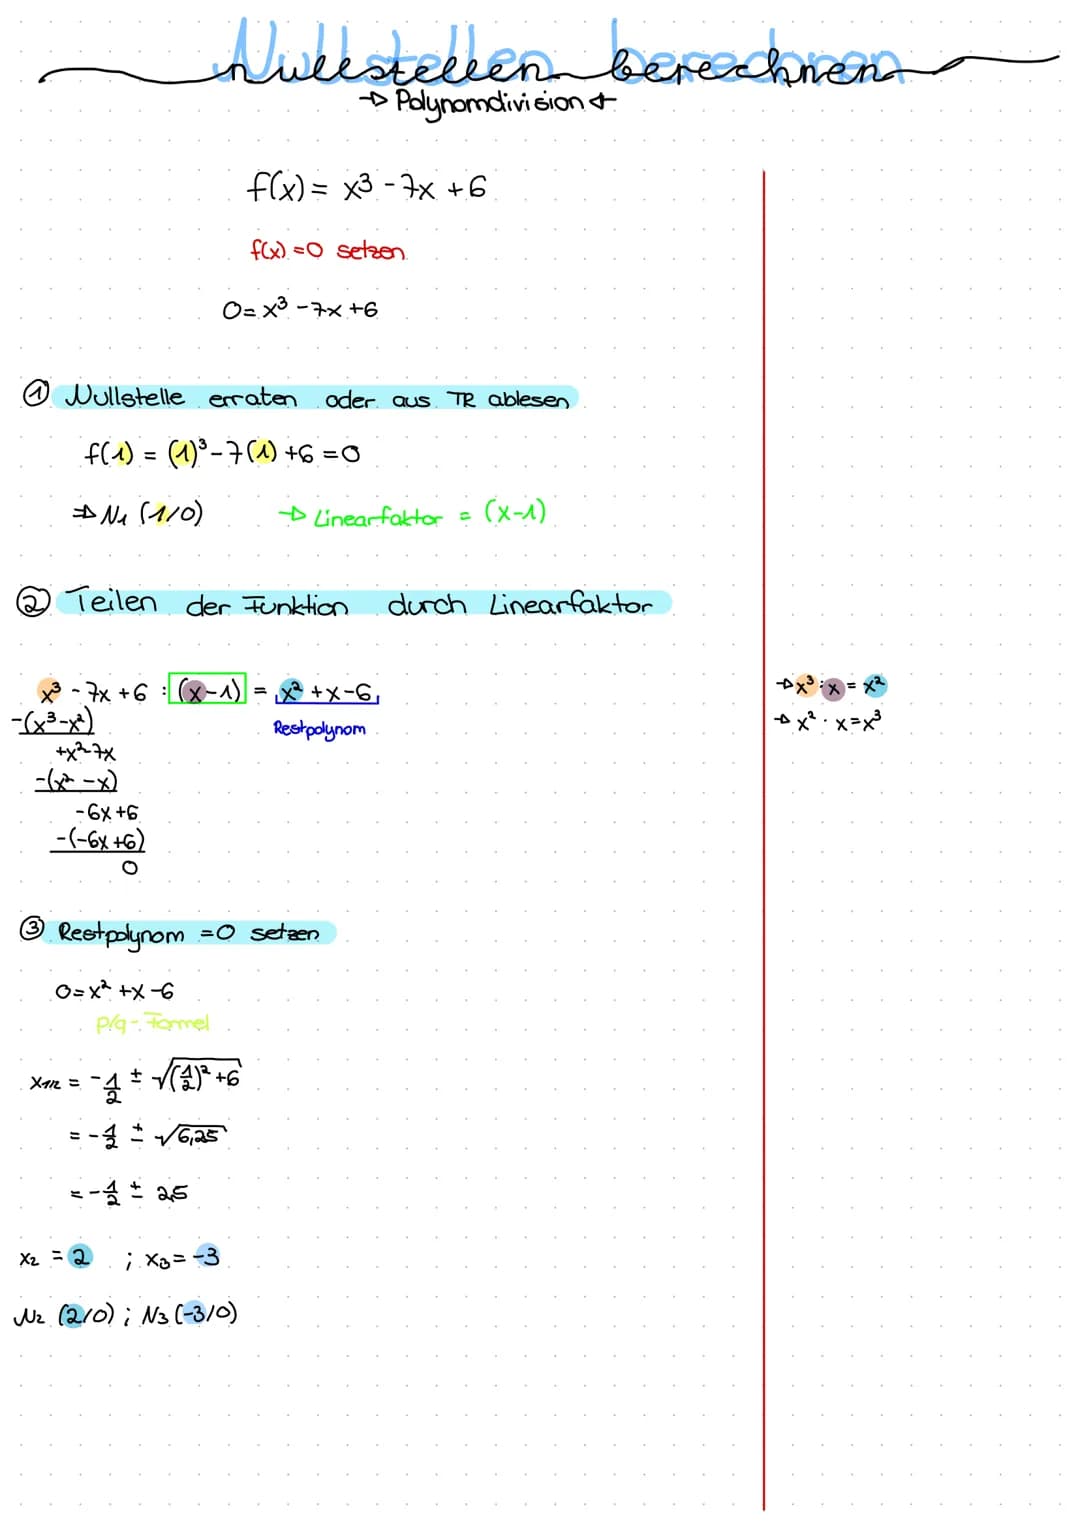 Nullstellen berechnen
→ Polynomdivision ←
f(x) = x³ - 7x + 6
f(x) = 0 setzen
0 = x³ - 7x + 6
① Nullstelle erraten oder aus TR ablesen
f(1) = (1)³ - 7(1) + 6 = 0
⇒ N₁ (1/0) → Linearfaktor = (x-1)
② Teilen der Funktion durch Linearfaktor
x³ - 7x + 6 : (x-1) = x² + x - 6
Restpolynom
-(x³-x²)
+x²-7x
-(x² -x)
-6x+6
-(-6x+6)
0
→ x³ : x = x²
→ x² · x = x³
③ Restpolynom = 0 setzen
0 = x² + x - 6
p/q - Formel
x₁/₂ = -1/2 ± √((1/2)² + 6)
= -1/2 ± √6,25
= -1/2 ± 2,5
x₂ = 2 ; x₃ = -3
N₂ (2/0) ; N₃ (-3/0)